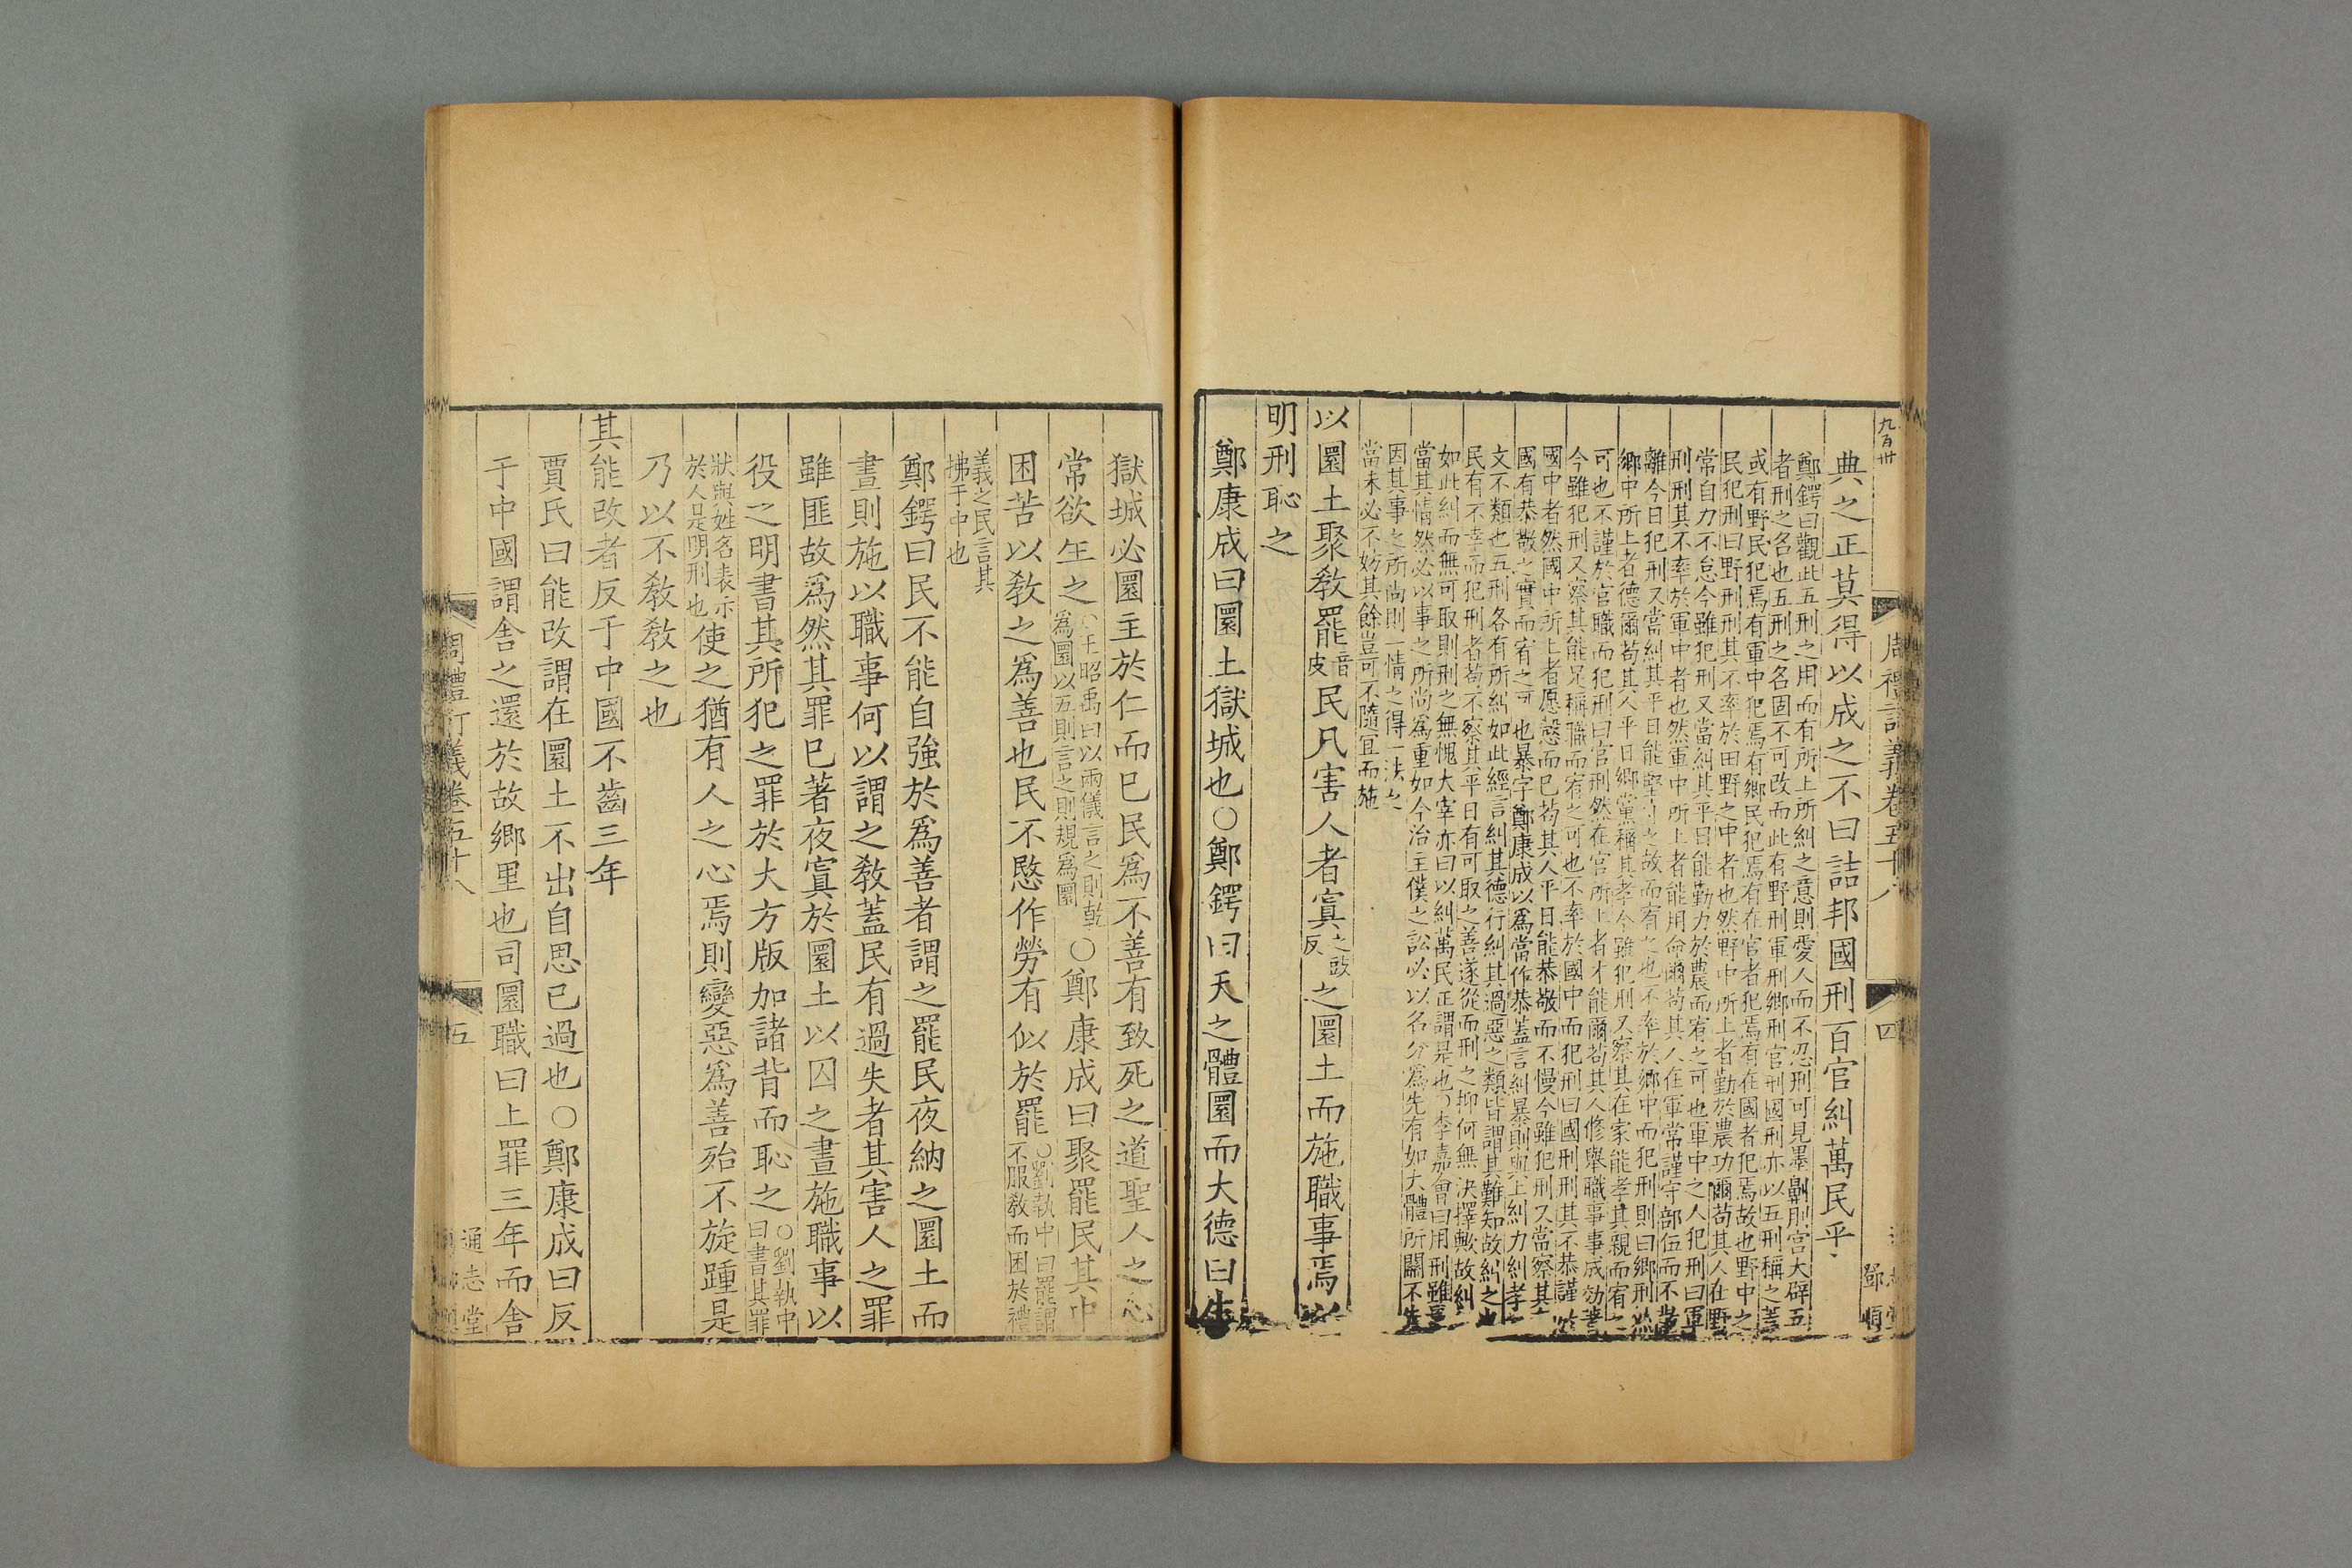 九百卅
周禮訂義卷五十八
四
鄧順
典之正莫得以成之不曰詰邦國刑百官糾萬民乎
鄭鍔曰觀此五刑之用而有所上所糾之意則愛人而不忍刑可見墨劓刖宮大辟五
者刑之名也五刑之名固不可改而此有野刑軍刑鄉刑官刑國刑亦以五刑稱之蓋
或有野民犯焉有軍中犯焉有鄉民犯焉有在官者犯焉有在國者犯焉故也野中之
民犯刑曰野刑刑其不率於田野之中者也然野中所上者勤於農功爾苟其人在野
常自力不怠今雖犯刑又當糾其平日能勤力於農而宥之可也軍中之人犯刑曰軍
刑刑其不率於軍中者也然軍中所上者能用命爾苟其人在軍常謹守部伍而不
離今日犯刑又當糾其平日能堅守之故而宥之也不率於鄉中而犯刑則曰鄉刑
鄉中所上者德爾苟其人平日鄉黨稱其孝今雖犯刑又察其在家能孝其親而宥之
可也不謹於官職而犯刑曰官刑然在官所上者才能爾苟其人修舉職事事成効著
今雖犯刑又察其能足稱職而宥之可也不率於國中而犯刑曰國刑刑其不恭謹
國中者然國中所上者愿愨而已苟其人平日能恭敬而不慢今雖犯刑又當察其
國有恭敬之實而宥之可也暴字鄭康成以爲當作恭蓋言糾暴則與上糾力糾孝
文不類也五刑各有所糾如此經言糾其德行糾其過惡之類皆謂其難知故糾之
民有不幸而犯刑者苟不察其平日有可取之善遂從而刑之抑何無決擇歟故糾
如此糾而無可取則刑之無愧大宰亦曰以糾萬民正謂是也○李嘉會曰用刑雖
當其情然必以事之所尚爲重如今治主僕之訟必以名分爲先有如大體所關不先
因其事之所尚則一情之得一法之
當未必不妨其餘豈可不隨宜而施
以圜土聚敎罷音皮民凡害人者寘之豉反之圜土而施職事焉以
明刑恥之
鄭康成曰圜土獄城也○鄭鍔曰天之體圜而大德曰生
獄城必圜主於仁而已民爲不善有致死之道聖人之心
常欲生之○王昭禹曰以兩儀言之則乾爲圜以五則言之則規爲圜○鄭康成曰聚罷民其中
困苦以敎之爲善也民不愍作勞有似於罷○劉執中曰罷謂不服敎而困於禮
義之民言其
拂于中也
鄭鍔曰民不能自強於爲善者謂之罷民夜納之圜土而
晝則施以職事何以謂之敎蓋民有過失者其害人之罪
雖匪故爲然其罪已著夜寘於圜土以囚之晝施職事以
役之明書其所犯之罪於大方版加諸背而恥之○劉執中曰書其罪
狀與姓名表示於人是明刑也使之猶有人之心焉則變惡爲善殆不旋踵是
乃以不敎敎之也
其能改者反于中國不齒三年
賈氏曰能改謂在圜土不出自思已過也○鄭康成曰反
于中國謂舍之還於故鄉里也司圜職曰上罪三年而舍
周禮訂義卷五十八
五
通志堂